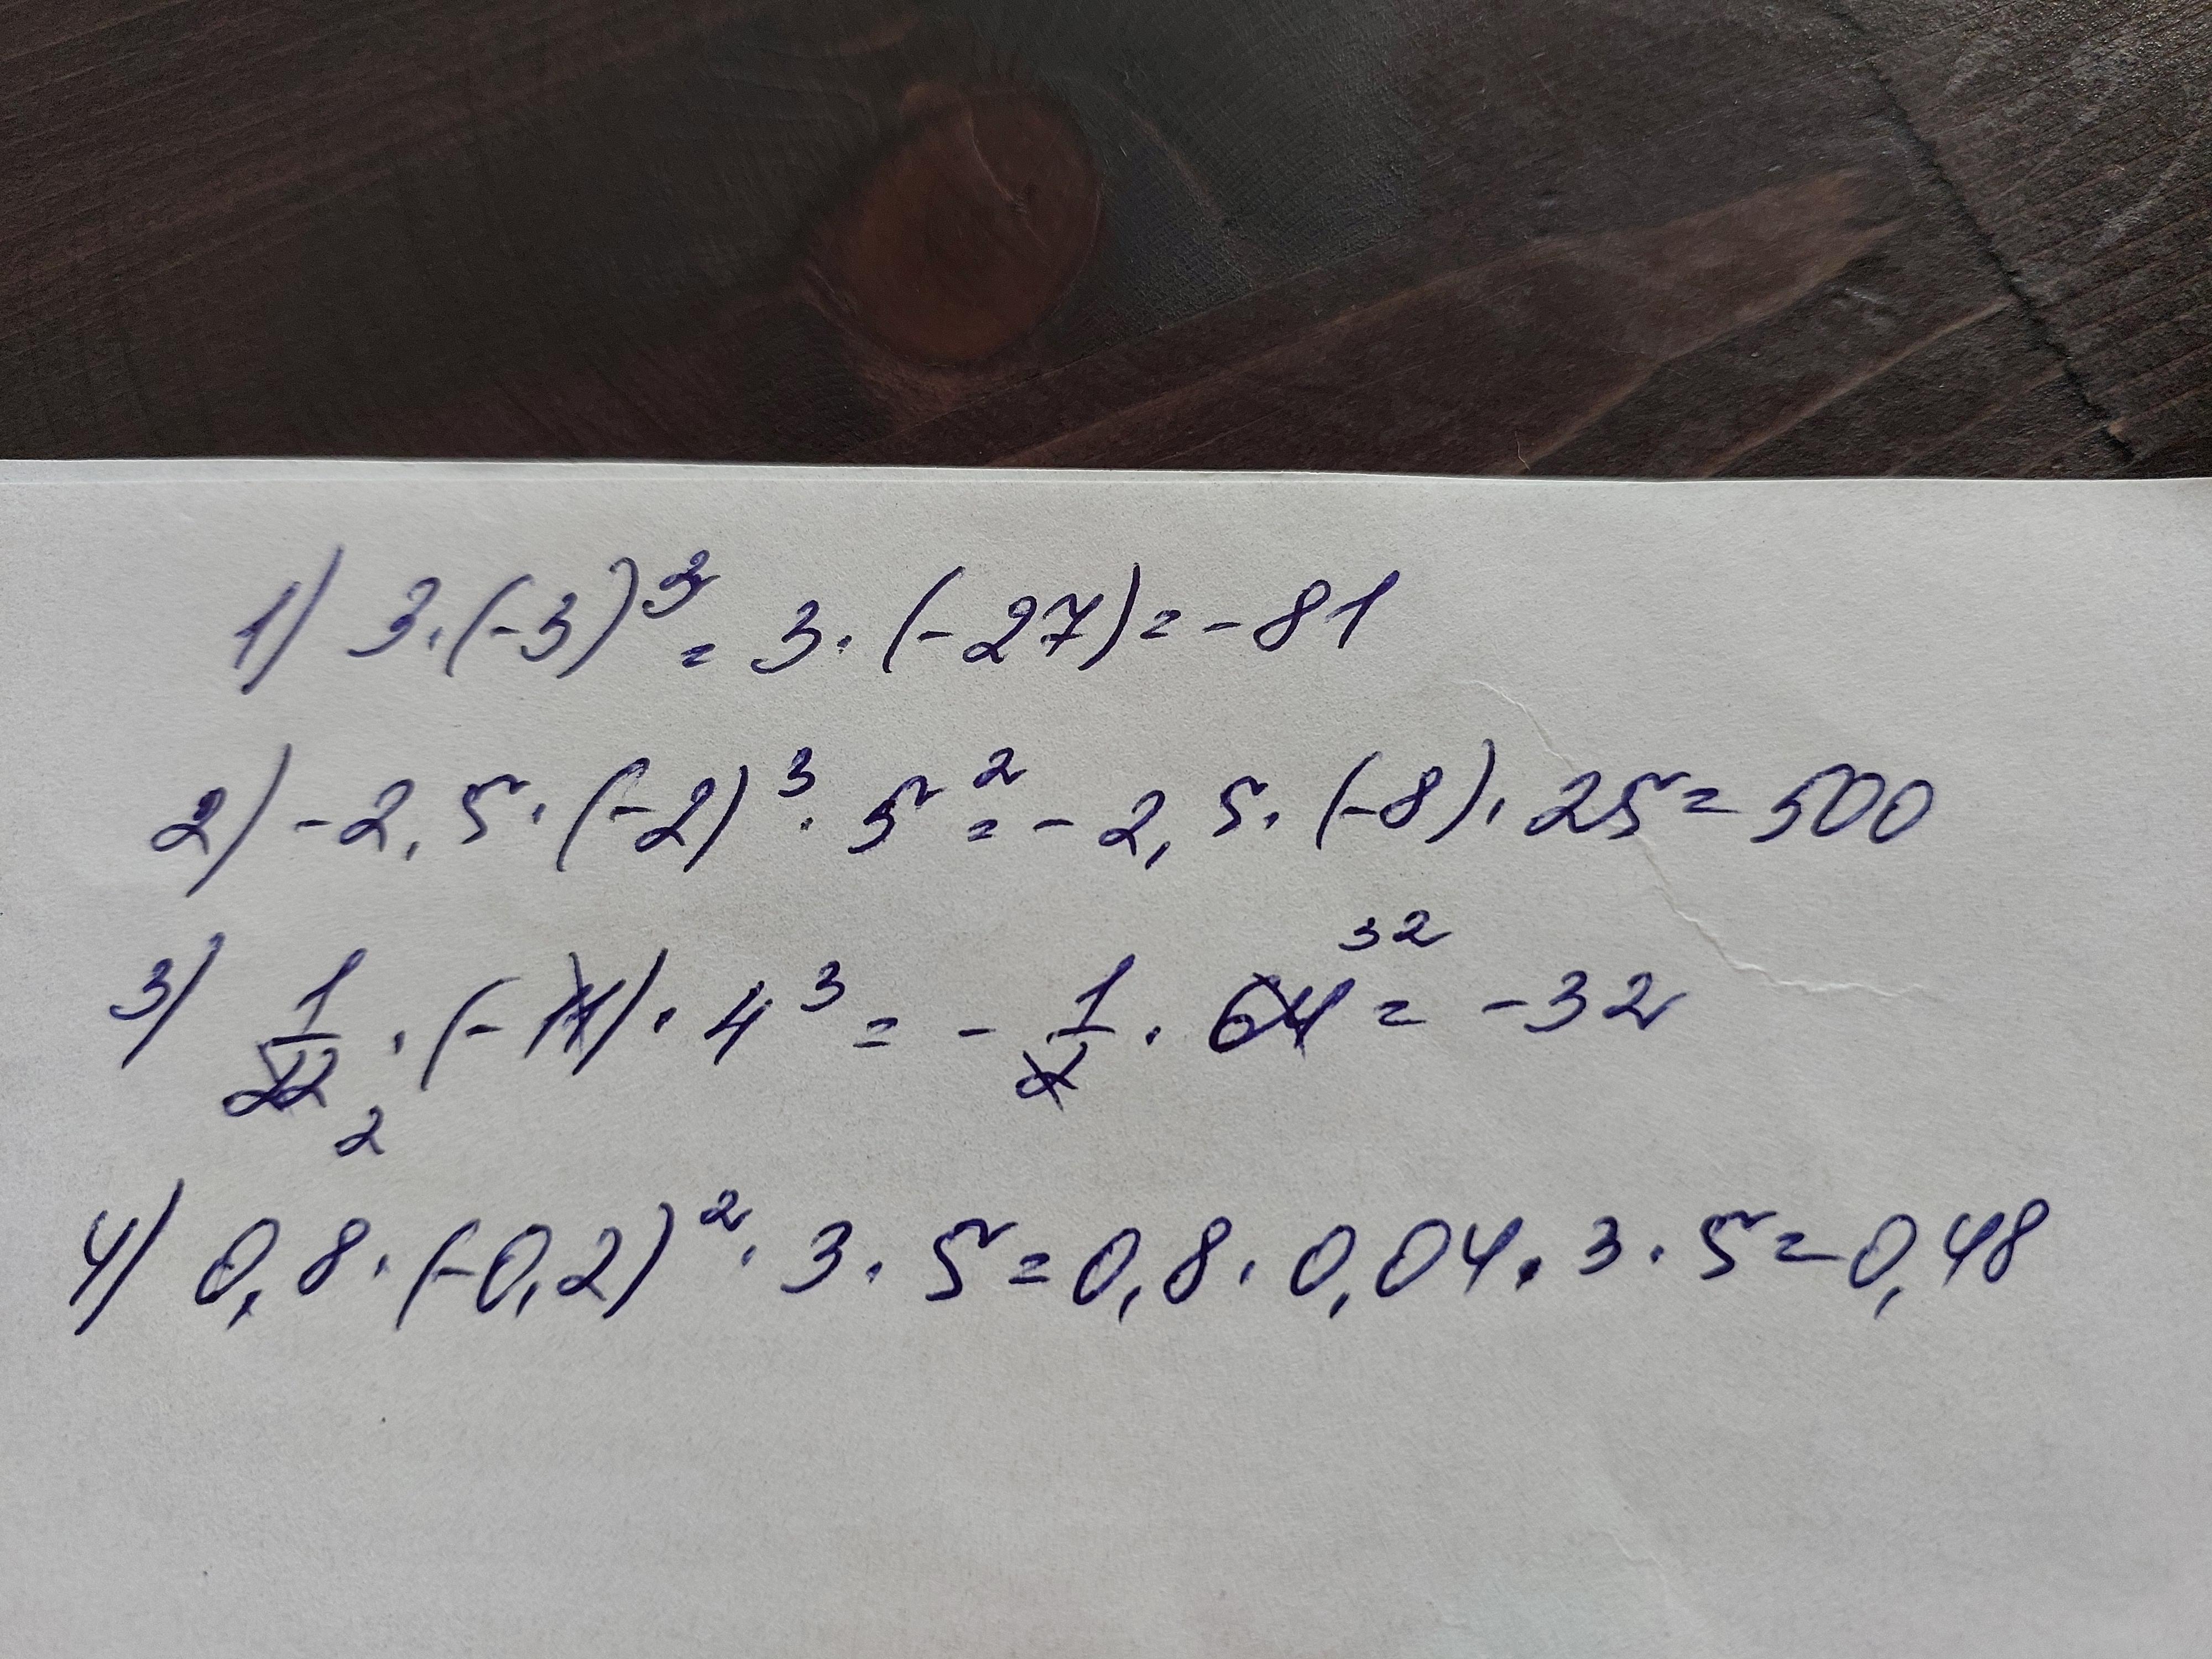 1) 3·(-3)³ = 3·(-27) = -81
2) -2,5·(-2)³·5² = -2,5·(-8)·25 = 500
3) 1/22·(-11)·4³ = -1/2·64 = -32
32
2
4) 0,8·(-0,2)²·3·5 = 0,8·0,04·3·5 = 0,48